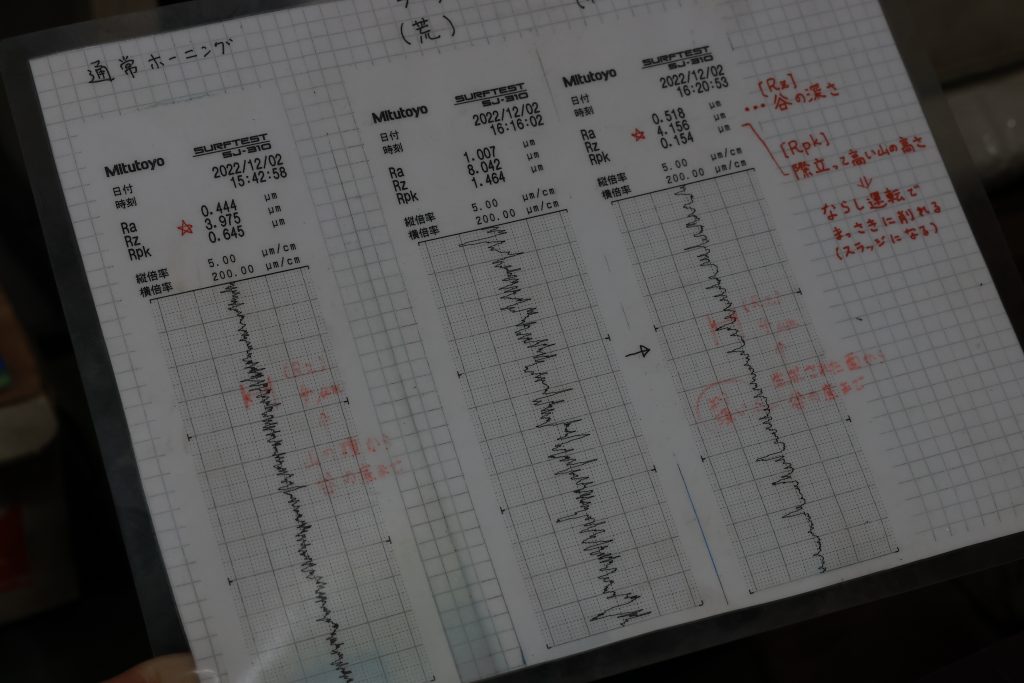 通常ホーニング
(荒)
Mitutoyo
SURFTEST
SJ-310
日付 2022/12/02
時刻 15:42:58
Ra 0.444 μm
☆ Rz 3.975 μm
Rpk 0.645 μm
縦倍率 5.00 μm/cm
横倍率 200.00 μm/cm
Mitutoyo
SURFTEST
SJ-310
日付 2022/12/02
時刻 16:16:02
Ra 1.007 μm
Rz 8.042 μm
Rpk 1.464 μm
縦倍率 5.00 μm/cm
横倍率 200.00 μm/cm
→
Mitutoyo
SURFTEST
SJ-310
日付 2022/12/02
時刻 16:20:53
Ra 0.518 μm
☆ Rz 4.156 μm
Rpk 0.154 μm
縦倍率 5.00 μm/cm
横倍率 200.00 μm/cm
[Rz]
… 谷の深さ
[Rpk]
際立って高い山の高さ
⇓
ならし運転で
まっさきに削れる
(スラッジになる)
(Rz)
4μm
山の頂から
谷の底まで